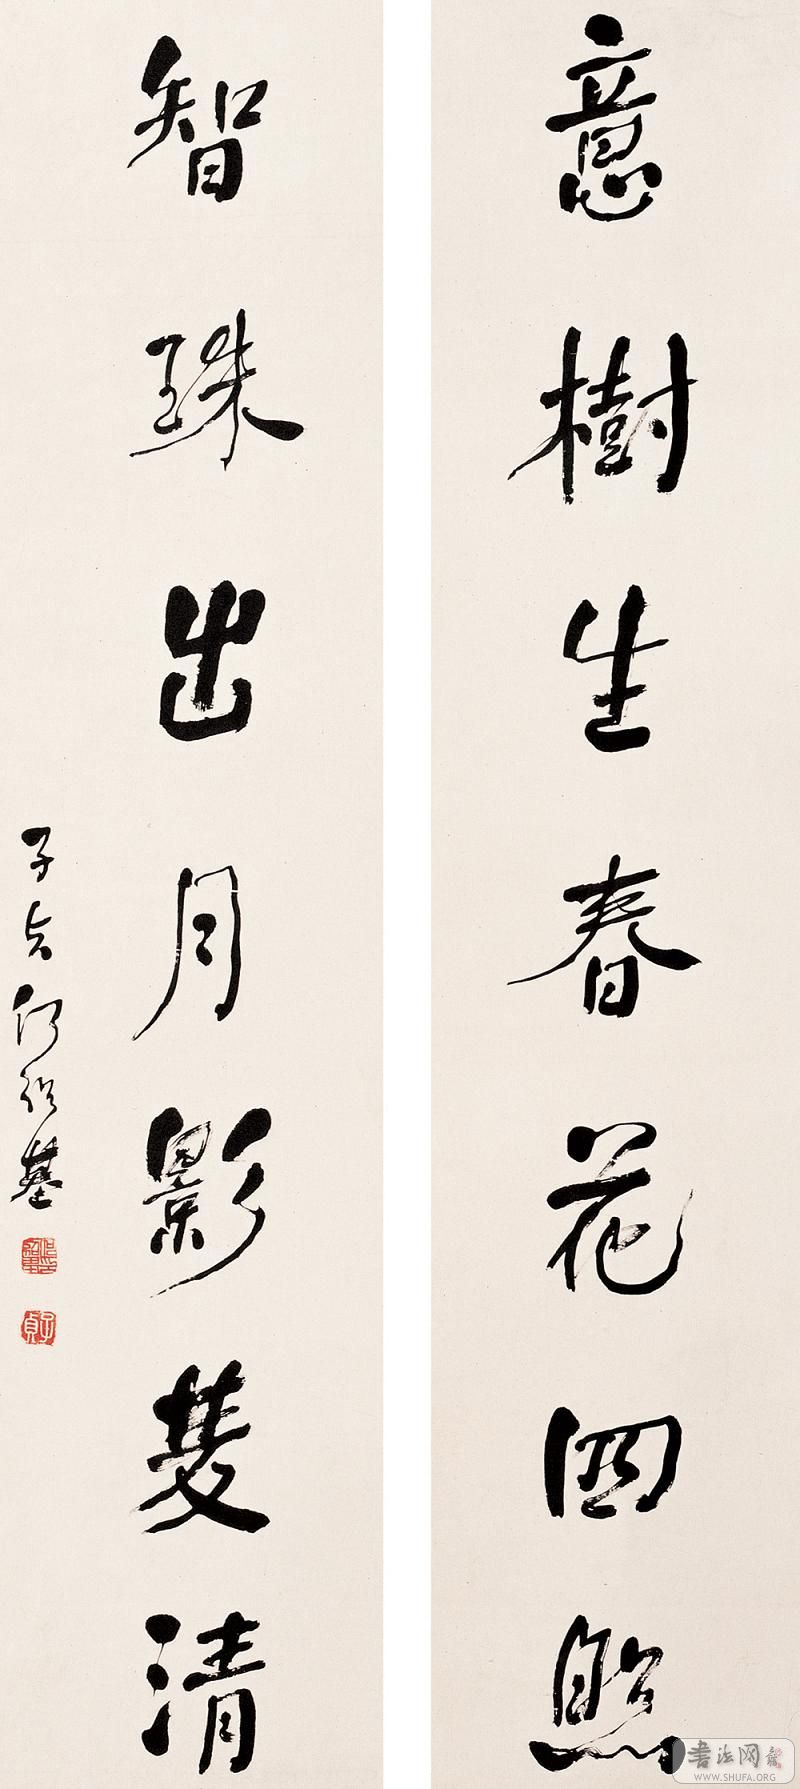 意樹生春花四照
智珠出月影雙清
子貞何紹基
子貞
書法网
WWW.SHUFA.ORG